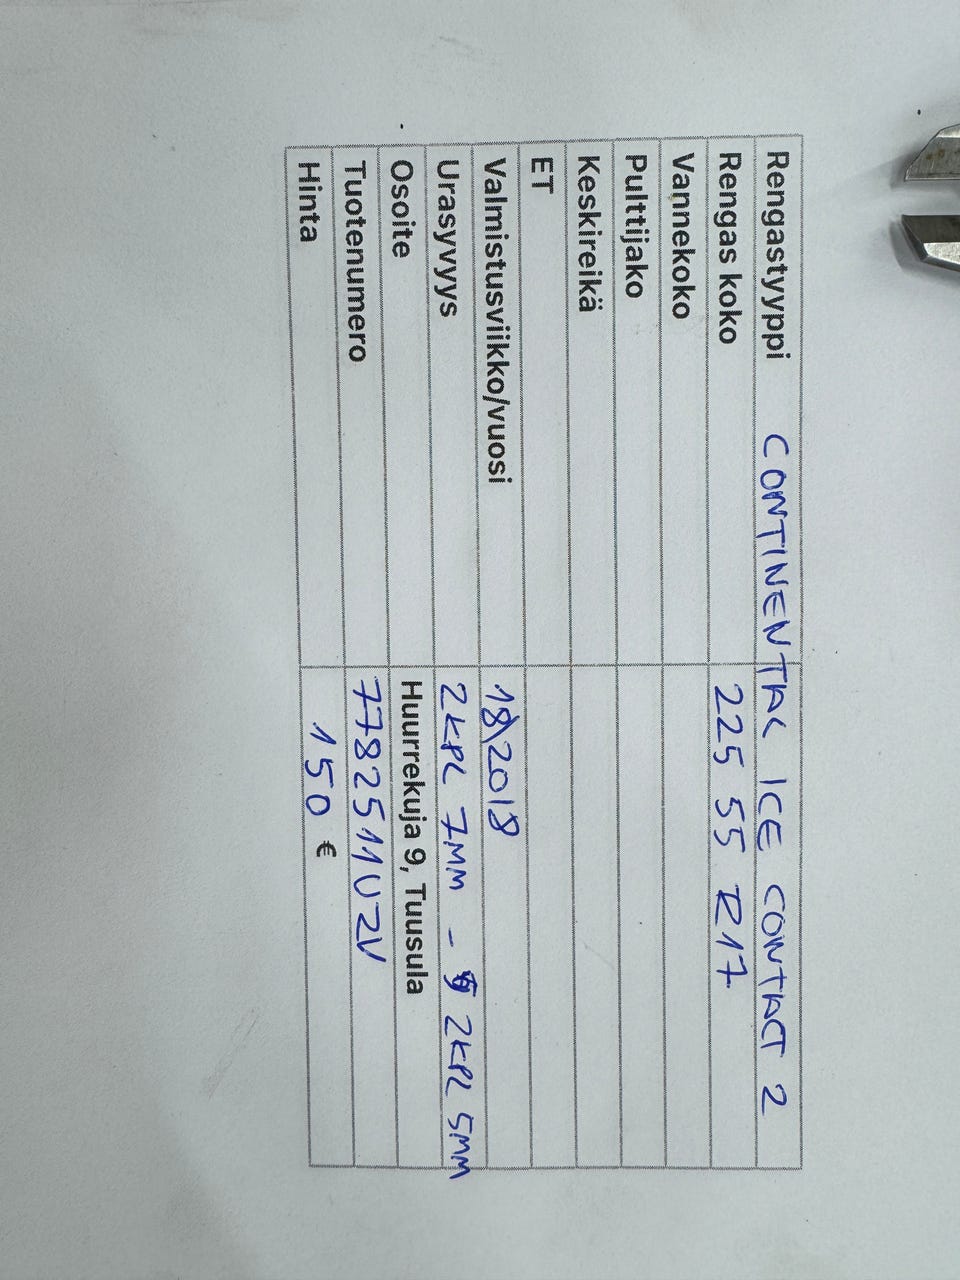 Rengastyyppi CONTINENTAL ICE CONTACT 2
Rengas koko 225 55 R17
Vannekoko
Pulttijako
Keskireikä
ET
Valmistusviikko/vuosi 18\2018
Urasyvyys 2KPL 7MM - 2KPL 5MM
Osoite Huurrekuja 9, Tuusula
Tuotenumero
Hinta 150 €